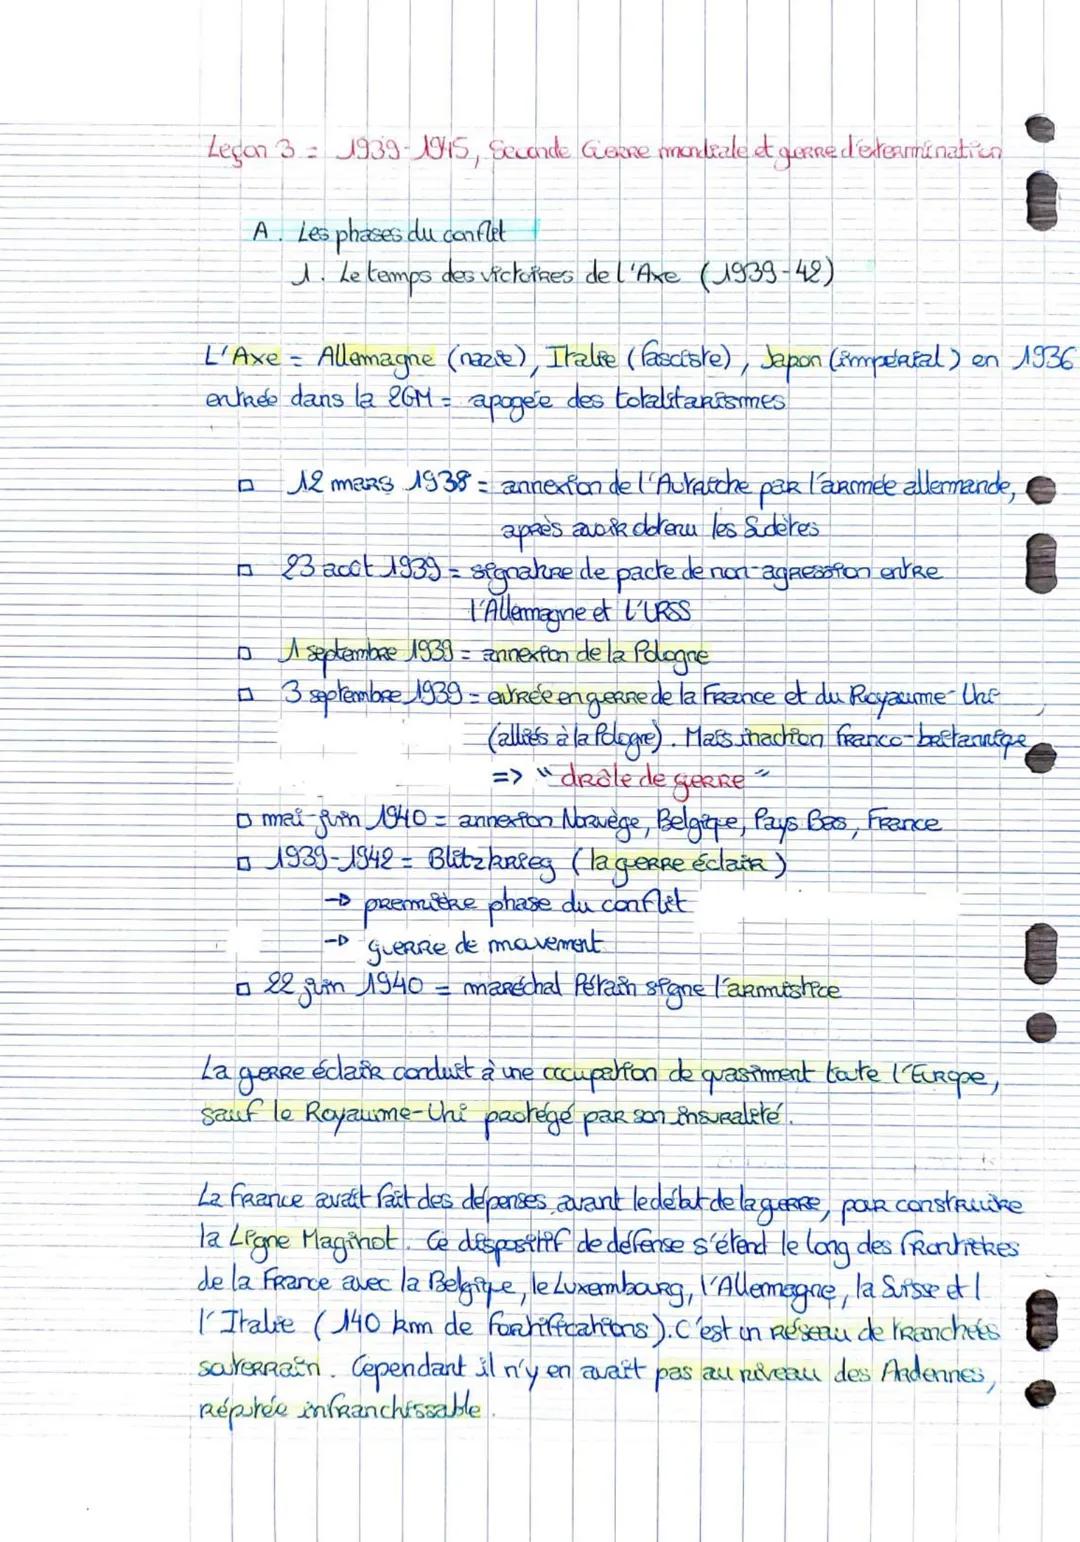 Leçon 3 = 1939-1945, Seconde Guerre mondiale et guerre d'extermination
A. Les phases du conflit
1. Le temps des victoires de l'Axe (1939-42)
L'Axe = Allemagne (nazie), Italie (fasciste), Japon (impérial) en 1936
entrée dans la 2GM = apogée des totalitarismes
□ 12 mars 1938 = annexion de l'Autriche par l'armée allemande,
après avoir obtenu les Sudètes
□ 23 août 1939 = signature de pacte de non-agression entre
l'Allemagne et l'URSS
□ 1 septembre 1939 = annexion de la Pologne
□ 3 septembre 1939 = entrée en guerre de la France et du Royaume-Uni
(alliés à la Pologne). Mais inaction franco-britannique
=> "drôle de guerre"
□ mai-juin 1940 = annexion Norvège, Belgique, Pays Bas, France
□ 1939-1942 = Blitzkrieg (la guerre éclair)
→ première phase du conflit
→ guerre de mouvement
□ 22 juin 1940 = maréchal Pétain signe l'armistice
La guerre éclair conduit à une occupation de quasiment toute l'Europe,
sauf le Royaume-Uni protégé par son insularité.
La France avait fait des dépenses avant le début de la guerre, pour construire
la Ligne Maginot. Ce dispositif de défense s'étend le long des frontières
de la France avec la Belgique, le Luxembourg, l'Allemagne, la Suisse et l
l'Italie (140 km de fortifications). C'est un réseau de tranchées
souterrain. Cependant il n'y en avait pas au niveau des Ardennes,
réputée infranchissable.